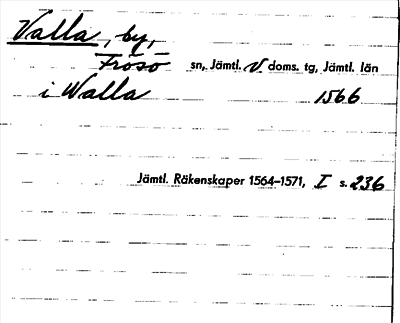 Valla, by,
Frösö sn, Jämtl. V doms. tg, Jämtl. län
i Walla 1566
Jämtl. Räkenskaper 1564–1571, I s. 236